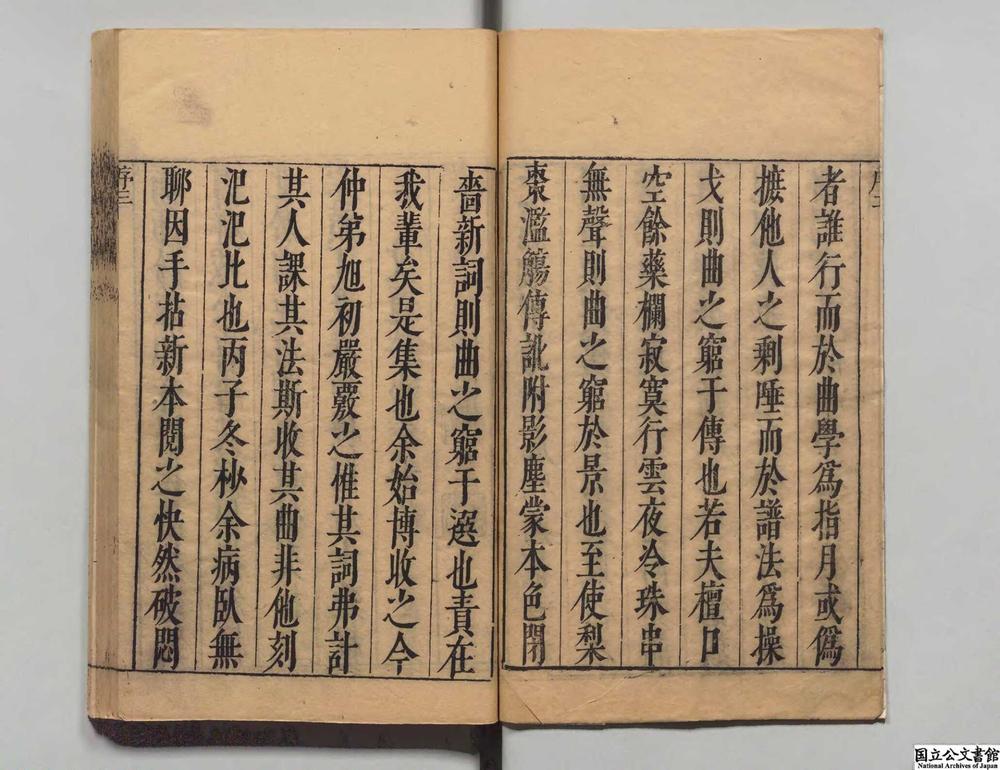 者誰行而於曲學爲指月或僞
摭他人之剩唾而於譜法爲操
戈則曲之窮于傳也若夫檀口
空餘藥欄寂寞行雲夜冷珠串
無聲則曲之窮於景也至使梨
棗濫觴傳訛附影塵蒙本色閉
嗇新詞則曲之窮于選也責在
我輩矣是集也余始博收之今
仲弟旭初嚴覈之惟其詞弗計
其人課其法斯收其曲非他刻
汜汜比也丙子冬杪余病臥無
聊因手拈新本閱之快然破悶
序三
国立公文書館
National Archives of Japan